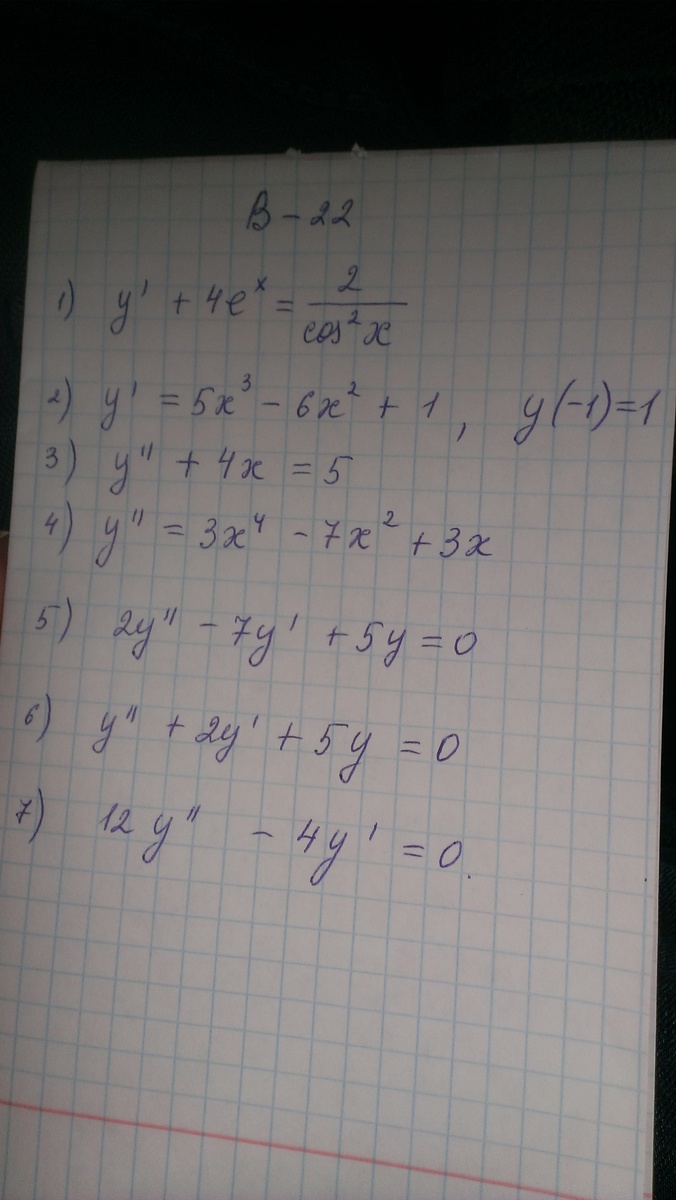 В – 22
1) y' + 4e^x = 2/cos²x
2) y' = 5x³ – 6x² + 1, y(-1)=1
3) y'' + 4x = 5
4) y'' = 3x⁴ – 7x² + 3x
5) 2y'' – 7y' + 5y = 0
6) y'' + 2y' + 5y = 0
7) 12y'' – 4y' = 0.